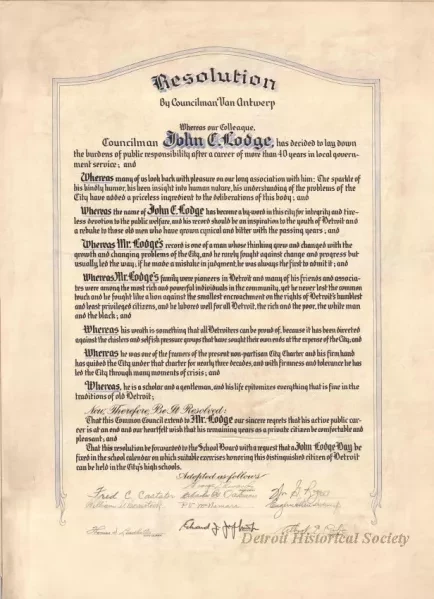 Resolution
By Councilman Van Antwerp
Whereas our Colleague,
Councilman John C. Lodge, has decided to lay down
the burdens of public responsibility after a career of more than 40 years in local govern-
ment service; and
Whereas many of us look back with pleasure on our long association with him: The sparkle of
his kindly humor, his keen insight into human nature, his understanding of the problems of the
City have added a priceless ingredient to the deliberations of this body; and
Whereas the name of John C. Lodge has become a by-word in this city for integrity and tire-
less devotion to the public welfare, and his record should be an inspiration to the youth of Detroit and
a rebuke to those old men who have grown cynical and bitter with the passing years; and
Whereas Mr. Lodge's record is one of a man whose thinking grew and changed with the
growth and changing problems of the City, and he rarely fought against change and progress but
usually led the way; if he made a mistake in judgment, he was always the first to admit it; and
Whereas Mr. Lodge's family were pioneers in Detroit and many of his friends and associa-
tes were among the most rich and powerful individuals in the community, yet he never lost the common
touch and he fought like a lion against the smallest encroachment on the rights of Detroit's humblest
and least privileged citizens, and he labored well for all Detroit, the rich and the poor, the white man
and the black; and
Whereas his wrath is something that all Detroiters can be proud of, because it has been directed
against the chislers and selfish pressure groups that have sought their own ends at the expense of the City; and
Whereas he was one of the framers of the present non-partisan City Charter and his firm hand
has guided the City under that charter for nearly three decades, and with firmness and tolerance he has
led the City through many moments of crisis; and
Whereas, he is a scholar and a gentleman, and his life epitomizes everything that is fine in the
traditions of old Detroit;
Now, Therefore, Be It Resolved:
That this Common Council extend to Mr. Lodge our sincere regrets that his active public car-
eer is at an end and our heartfelt wish that his remaining years as a private citizen be comfortable and
pleasant; and
That this resolution be forwarded to the School Board with a request that a John Lodge Day be
fixed in the school calendar on which suitable exercises honoring this distinguished citizen of Detroit
can be held in the City's high schools.
Adopted as follows
Fred C. Castator
Detroit Historical Society